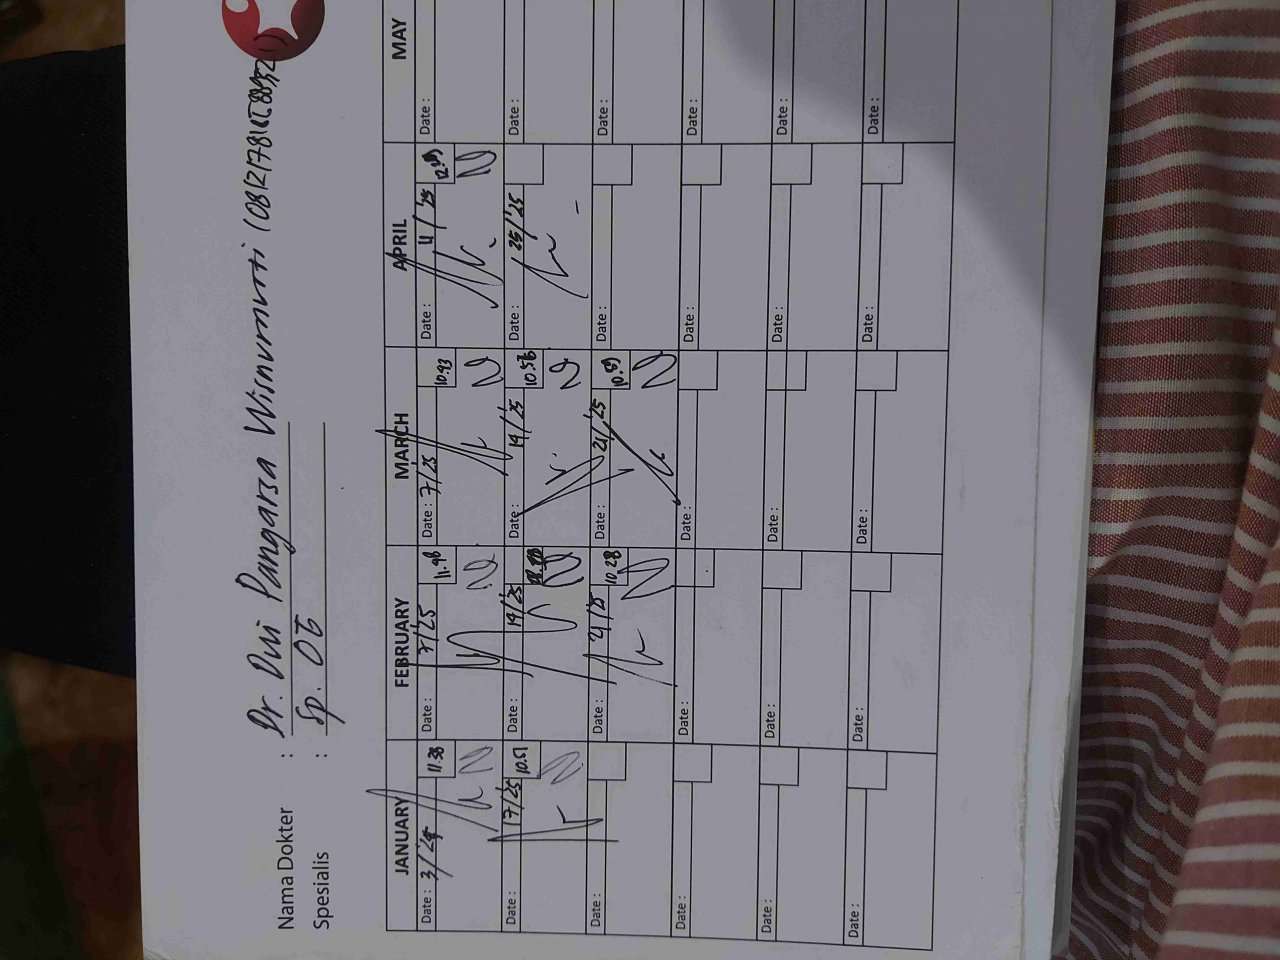 Nama Dokter : Dr. Dwi Pangarsa Wisnumurti
Spesialis : Sp. OT
JANUARY FEBRUARY MARCH APRIL MAY
Date : 3/25 11.38 Date : 7/25 11.48 Date : 7/25 10.43 Date : 4/'25 Date :
Date : 17/25 10.51 Date : 14/25 Date : 14/25 10.56 Date : 25/'25 Date :
Date : Date : 10.28 Date : 21/'25 10.59 Date : Date :
Date : Date : Date : Date : Date :
Date : Date : Date : Date : Date :
Date : Date : Date : Date : Date :